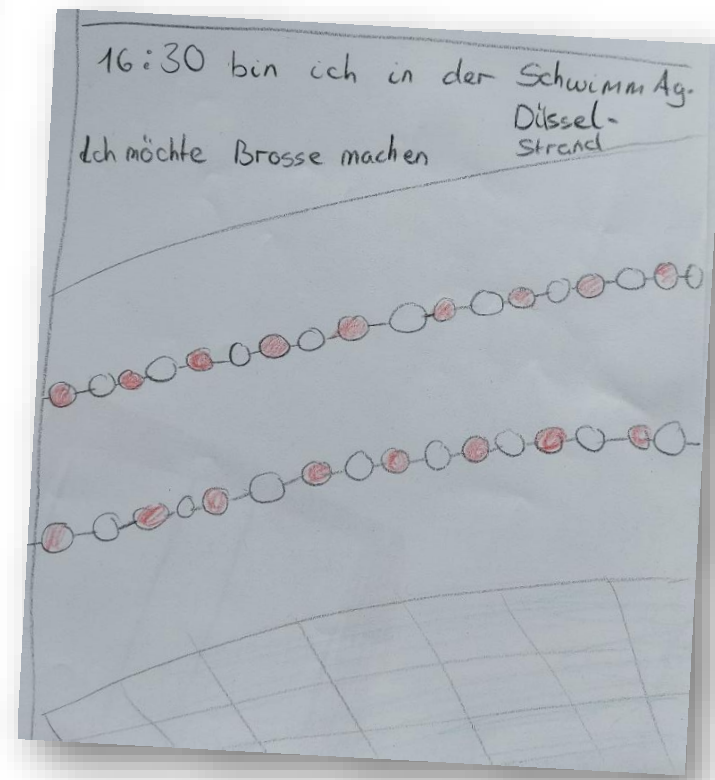 16:30 bin ich in der Schwimm Ag.
Düssel-
Strand
Ich möchte Brosse machen